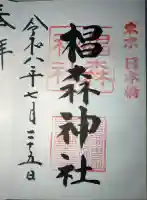 奉拝
東京 日本橋
椙森神社
令和八年七月二十五日